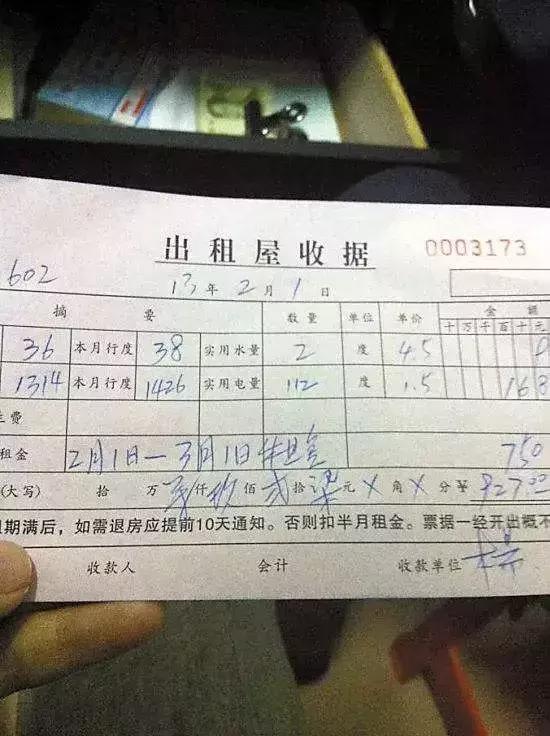 出租屋收据 0003173
602 13年2月1日
摘要 数量 单位 单价 金额
十万千百十元
36 本月行度 38 实用水量 2 度 4.5 9
1314 本月行度 1426 实用电量 112 度 1.5 168
费
租金 2月1日—3月1日租金 750
(大写) 拾 万 零仟 玖佰 贰拾 柒元 X角 X分 ¥ 927.00
租期满后，如需退房应提前10天通知。否则扣半月租金。票据一经开出概不
收款人 会计 收款单位